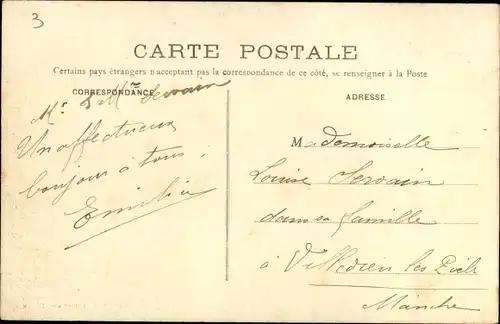 3
CARTE POSTALE
Certains pays étrangers n'acceptant pas la correspondance de ce côté, se renseigner à la Poste
CORRESPONDANCE
Mr & Mme Servain
Un affectueux
bonjour à tous.
Emilie
ADRESSE
Mademoiselle
Louise Servain
dans sa famille
à Villedieu les Poêles
Manche